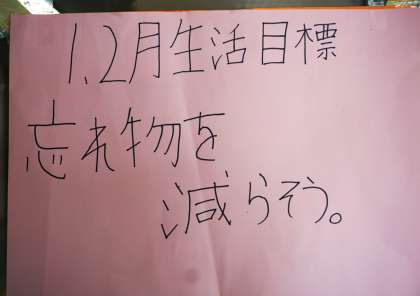 1.2月生活目標
忘れ物を
減らそう。